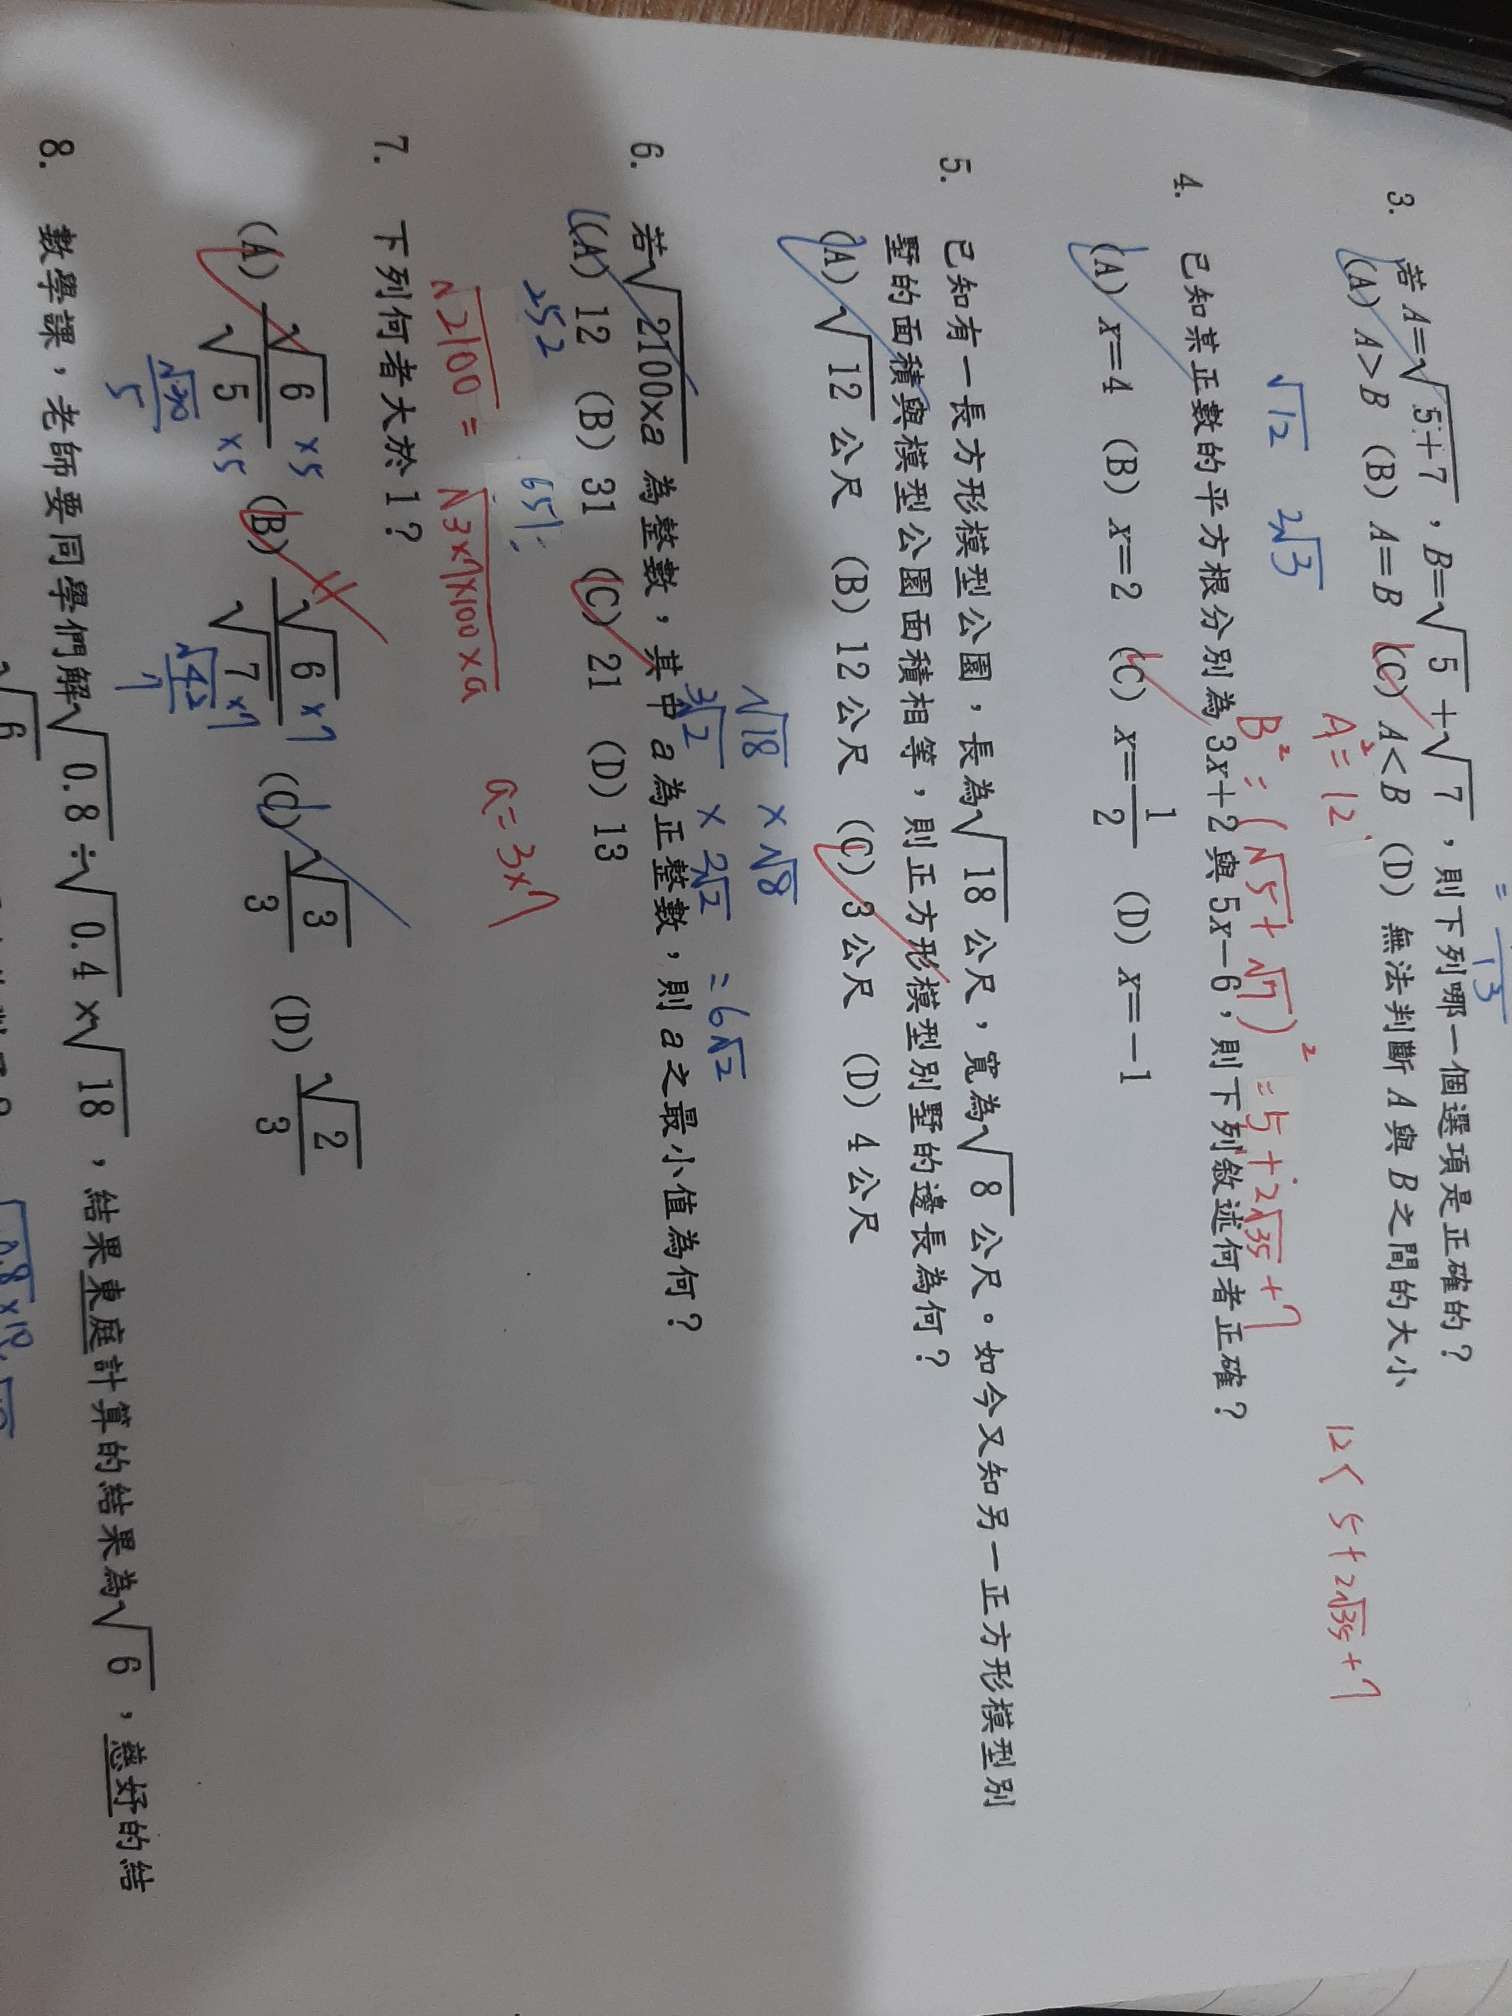 = 13
3. 若 A=√(5+7)，B=√5+√7，則下列哪一個選項是正確的？
(A) A>B (B) A=B (C) A<B (D) 無法判斷 A 與 B 之間的大小
A²=12 12<5+2√35+7
√12 2√3 B²=(√5+√7)²=5+2√35+7
4. 已知某正數的平方根分別為 3x+2 與 5x−6，則下列敘述何者正確？
(A) x=4 (B) x=2 (C) x=1/2 (D) x=−1
5. 已知有一長方形模型公園，長為√18 公尺，寬為√8 公尺。如今又知另一正方形模型別
墅的面積與模型公園面積相等，則正方形模型別墅的邊長為何？
(A) √12 公尺 (B) 12 公尺 (C) 3 公尺 (D) 4 公尺
√18 × √8
3√2 × 2√2 = 6√2
6. 若√(2100×a) 為整數，其中 a 為正整數，則 a 之最小值為何？
(A) 12 (B) 31 (C) 21 (D) 13
252 651
√2100 = √(3×7×100×a) a=3×7
7. 下列何者大於 1？
(A) √6/√5 (B) √6/√7 (C) √3/3 (D) √2/3
×5 ×5 ×7 ×7
√30/5 √42/7
8. 數學課，老師要同學們解√0.8÷√0.4×√18，結果東庭計算的結果為√6，慈妤的結
√6